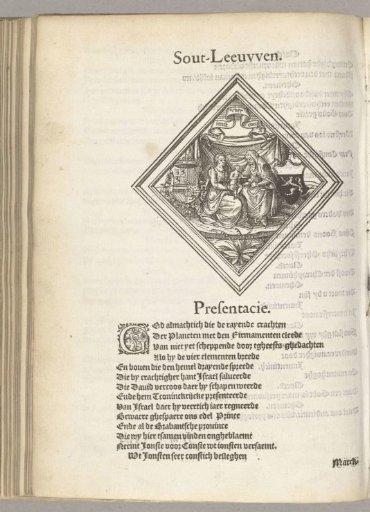 Sout-Leeuvven.
Presentacie.
GOd almachtich die de rayende crachten
Der Planeten met den Firmamenten cleede
Van niet yet scheppende door tgheests ghedachten
Alo hy de vier elementen breede
En bouen die den hemel drayende spreede
Die dy crachtigher hant Israel salueerde
Die Dauid vercoos daer hy schapen weerde
Ende hem Croninckrijcke presenteerde
Van Israel daer hy veertich iaer regneerde
Bewaere ghespaere ons edel Prince
Ende al de Brabantsche prouince
Die wy hier tsamen vinden ongheblaemt
Neemt Jonste voor Conste wt ionsten versaemt.
Wt Jonsten seer constich besleghen
Marck.